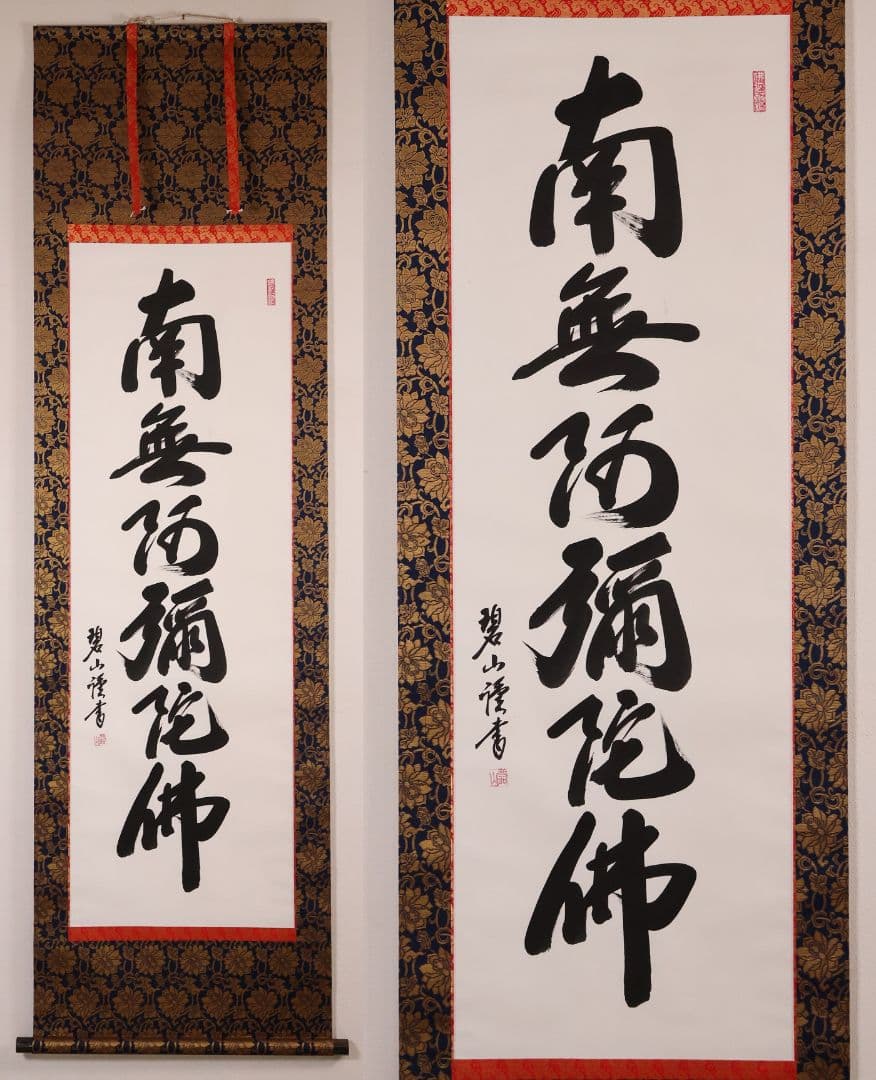 南無阿彌陀佛
碧山謹書
南無阿彌陀佛
碧山謹書